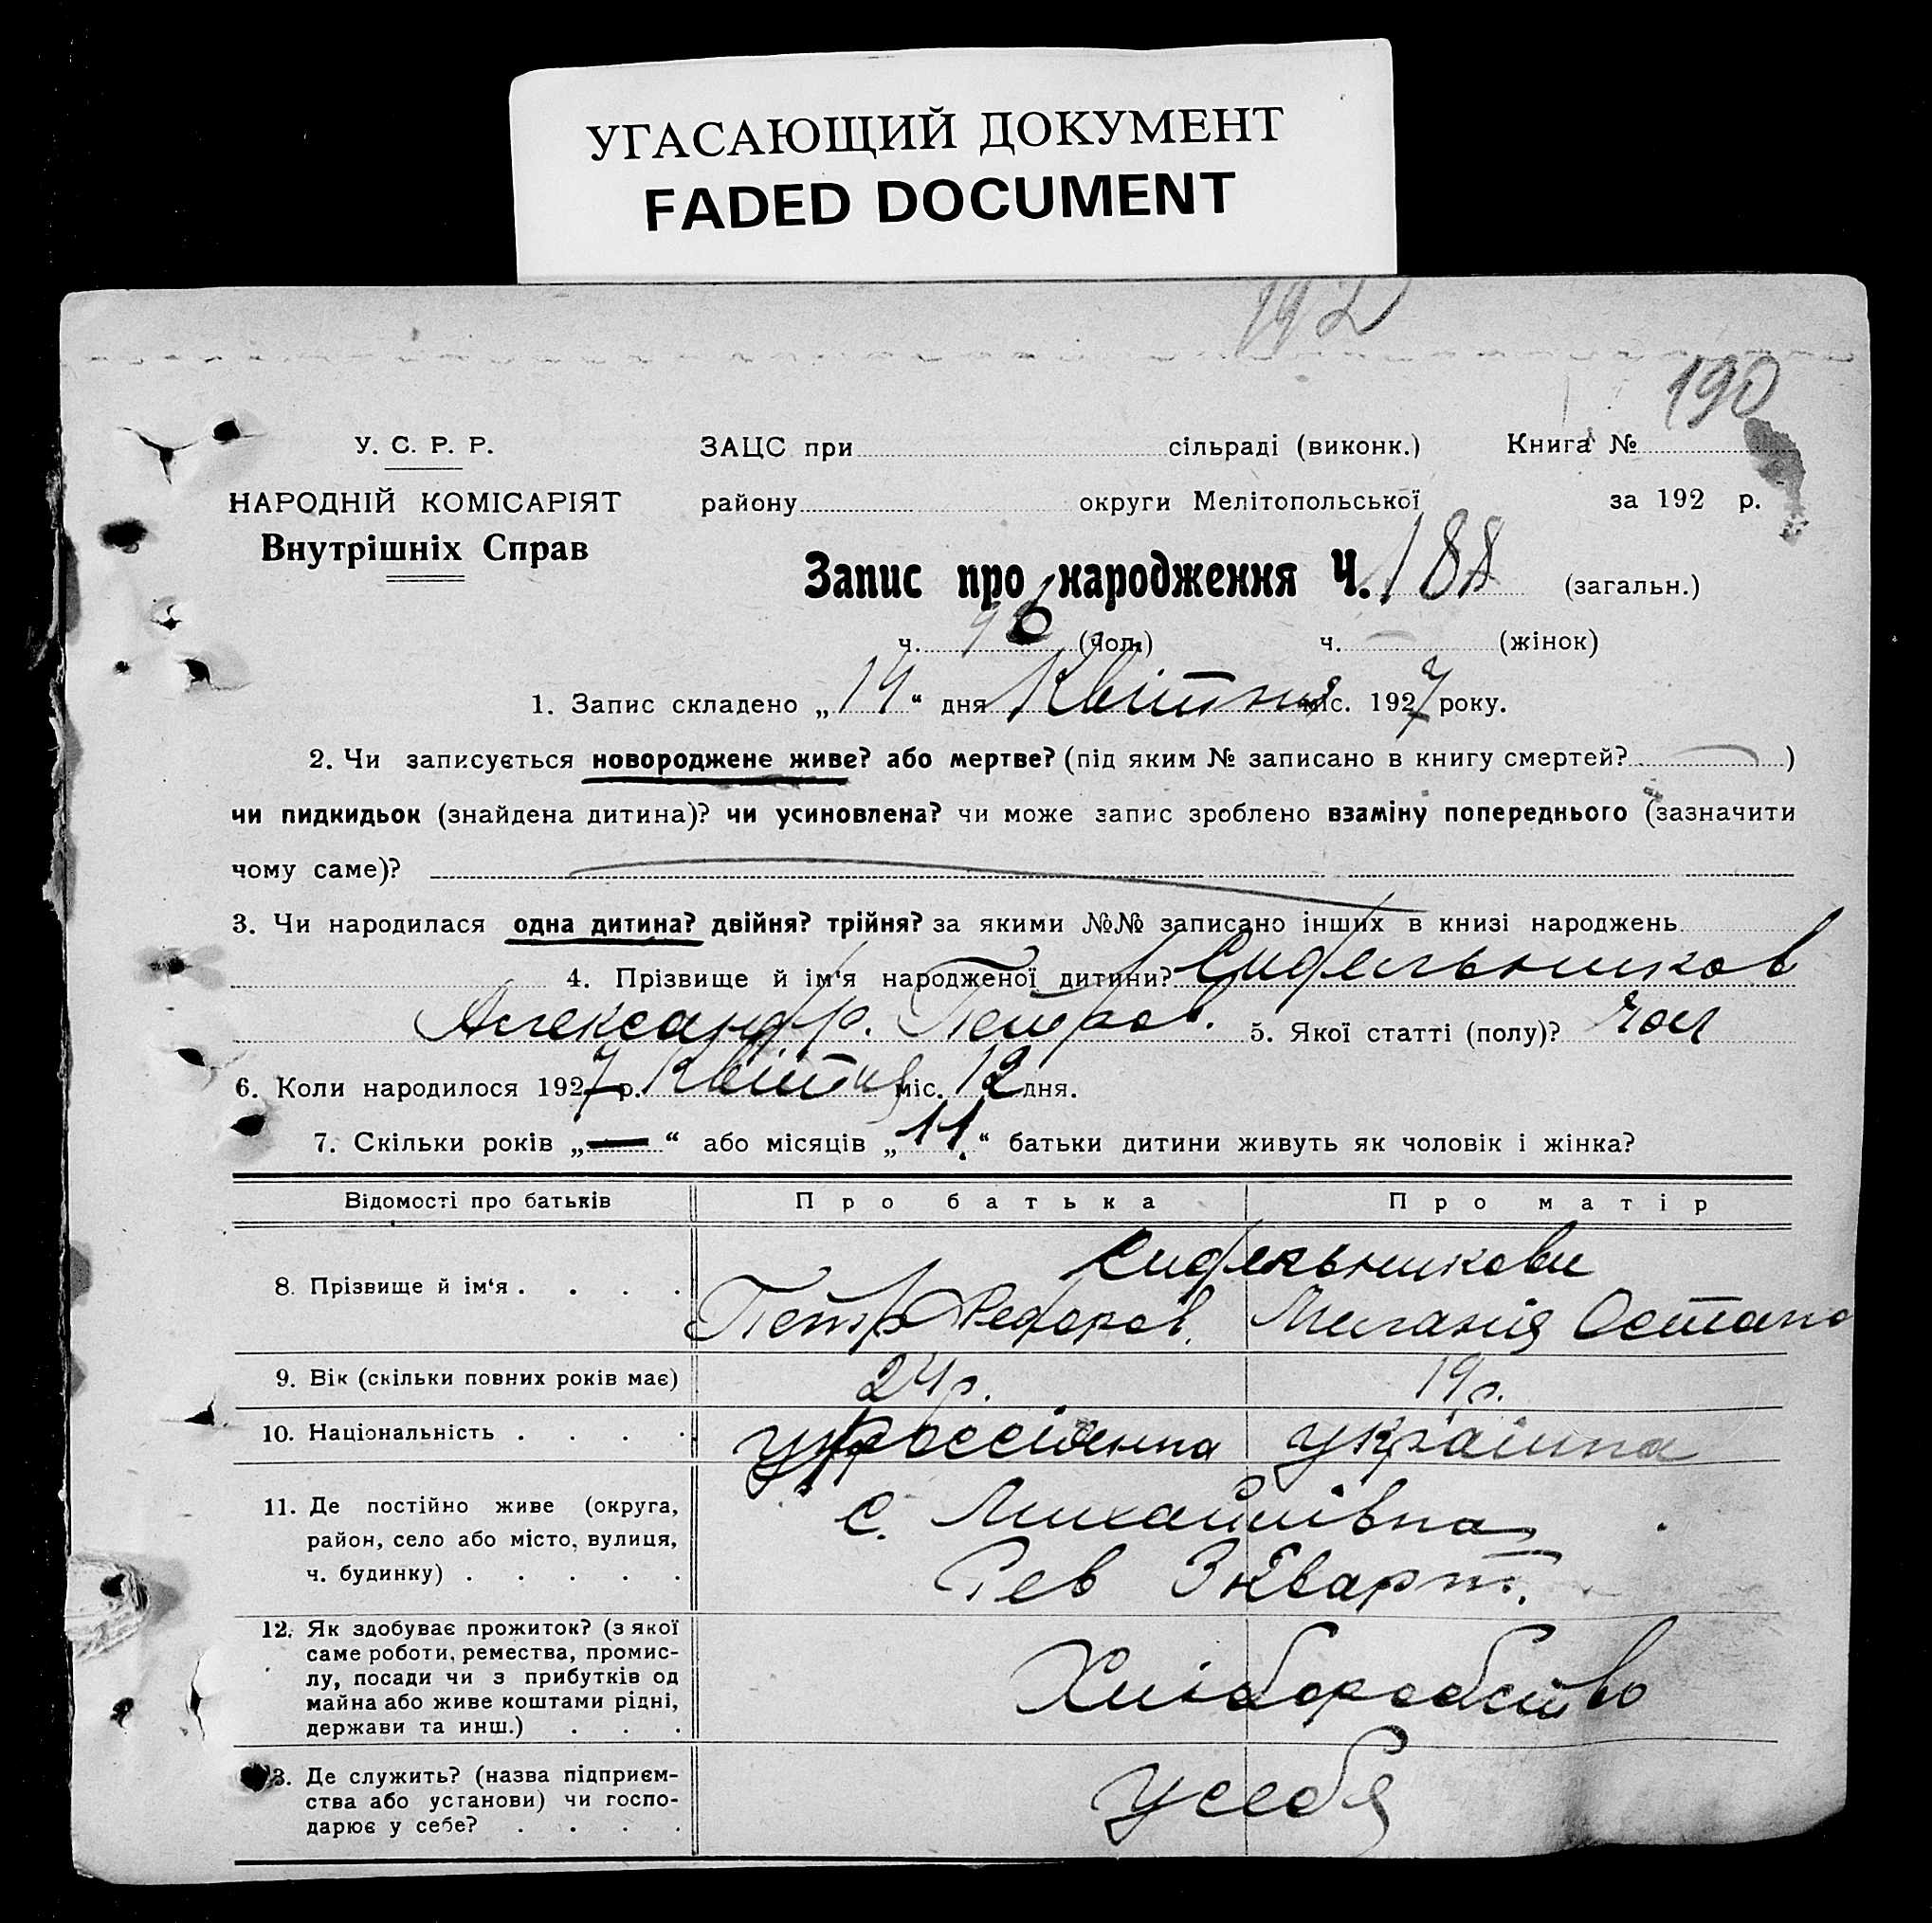 УГАСАЮЩИЙ ДОКУМЕНТ
FADED DOCUMENT
192
190
У. С. Р. Р.
НАРОДНІЙ КОМІСАРІЯТ
Внутрішніх Справ
ЗАЦС при сільраді (виконк.) Книга №
району округи Мелітопольської за 192 р.
Запис про народження Ч. 188 (загальн.)
ч. 96 (чол.) ч. — (жінок)
1. Запис складено „14“ дня Квітня міс. 1927 року.
2. Чи записується новороджене живе? або мертве? (під яким № записано в книгу смертей? — )
чи пидкидьок (знайдена дитина)? чи усиновлена? чи може запис зроблено взаміну попереднього (зазначити
чому саме)?
3. Чи народилася одна дитина? двійня? трійня? за якими №№ записано інших в книзі народжень
4. Прізвище й ім'я народженої дитини? Сидельников
Александр. Петров. 5. Якої статті (полу)? чол
6. Коли народилося 1927 р. Квітня міс. 12 дня.
7. Скільки років „—“ або місяців „11“ батьки дитини живуть як чоловік і жінка?
Відомості про батьків Про батька Про матір
Сидельникови
8. Прізвище й ім'я . . . . Петр Федоров. Мелания Остапо
9. Вік (скільки повних років має) 24 р. 19 р.
10. Національність . . . . україінка
11. Де постійно живе (округа,
район, село або місто, вулиця,
ч. будинку) . . . . .
с. Михайлівна
Рев 3 кварт.
12. Як здобуває прожиток? (з якої
саме роботи, ремества, промис-
лу, посади чи з прибутків од
майна або живе коштами рідні,
держави та инш.) . . .
Хліборобство
13. Де служить? (назва підприєм-
ства або установи) чи госпо-
дарює у себе? . . . .
у себя